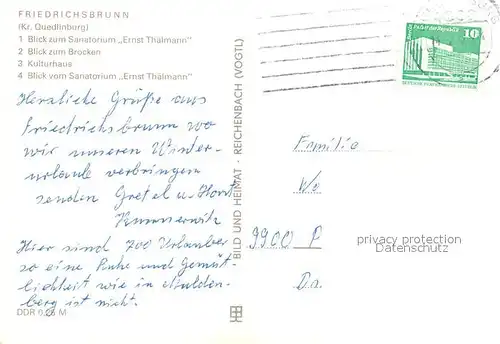 FRIEDRICHSBRUNN
(Kr. Quedlinburg)
1 Blick zum Sanatorium „Ernst Thälmann"
2 Blick zum Brocken
3 Kulturhaus
4 Blick vom Sanatorium „Ernst Thälmann"
Herzliche Grüße aus
Friedrichsbrunn wo
wir unseren Winter-
urlaub verbringen
senden Gretel u. Horst
Hier sind 700 Urlauber
so eine Ruhe und Gemüt-
lichkeit wie in
berg ist nicht.
DDR 0,25 M
BILD UND HEIMAT - REICHENBACH (VOGTL)
Palast der Republik
10
Familie
We
9900 P
privacy protection
Datenschutz